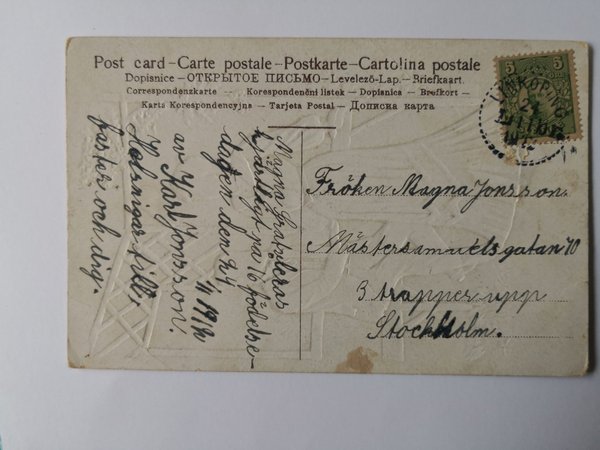 Post card – Carte postale – Postkarte – Cartolina postale
Dopisnice – ОТКРЫТОЕ ПИСЬМО – Levelező-Lap. – Briefkaart.
Correspondenzkarte – Korespondenční listek – Dopisnica – Brefkort –
Karta Korespondencyjna – Tarjeta Postal – Дописна карта
5 5
LINKÖPING
Magna Gratuleras
hjärtligt på 16 födelse-
dagen den 24/
11 1912
av Karl Jonsson.
Helsningar till,
faster och dig.
Fröken Magna Jonsson.
Mästersamuelsgatan 70
3 trappor upp
Stockholm.